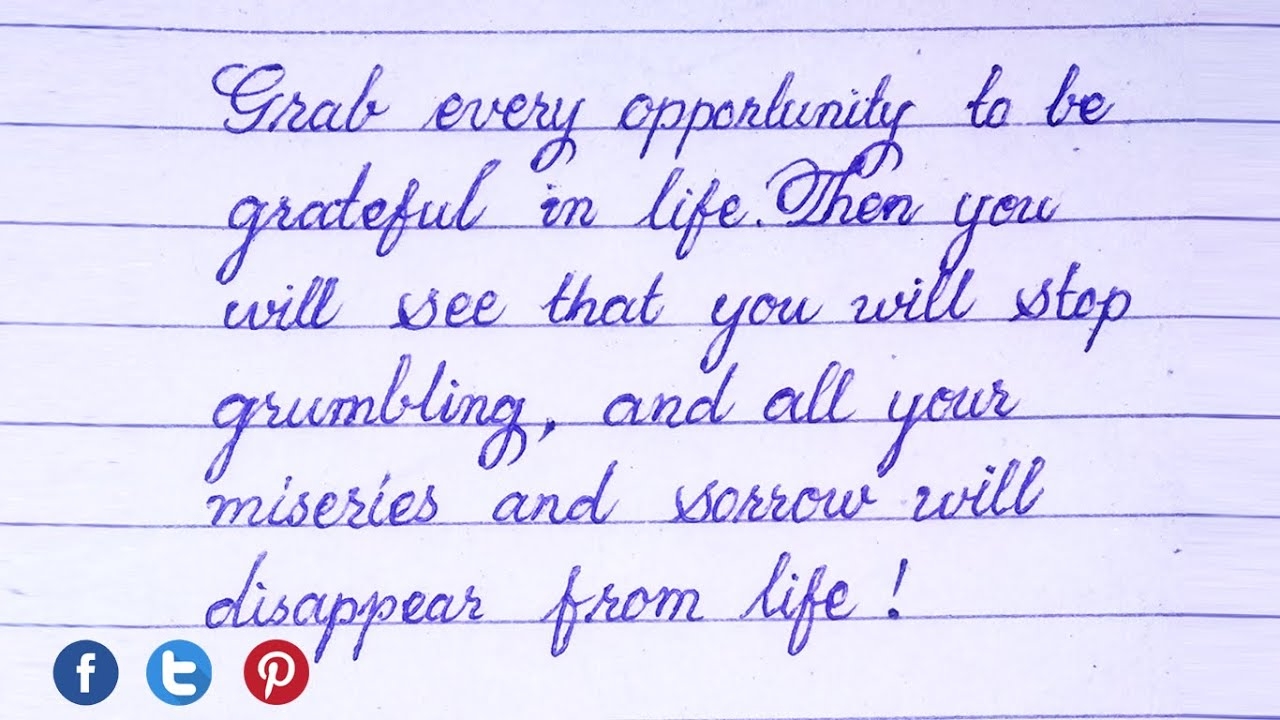 Grab every opportunity to be
grateful in life. Then you
will see that you will stop
grumbling, and all your
miseries and sorrow will
disappear from life!